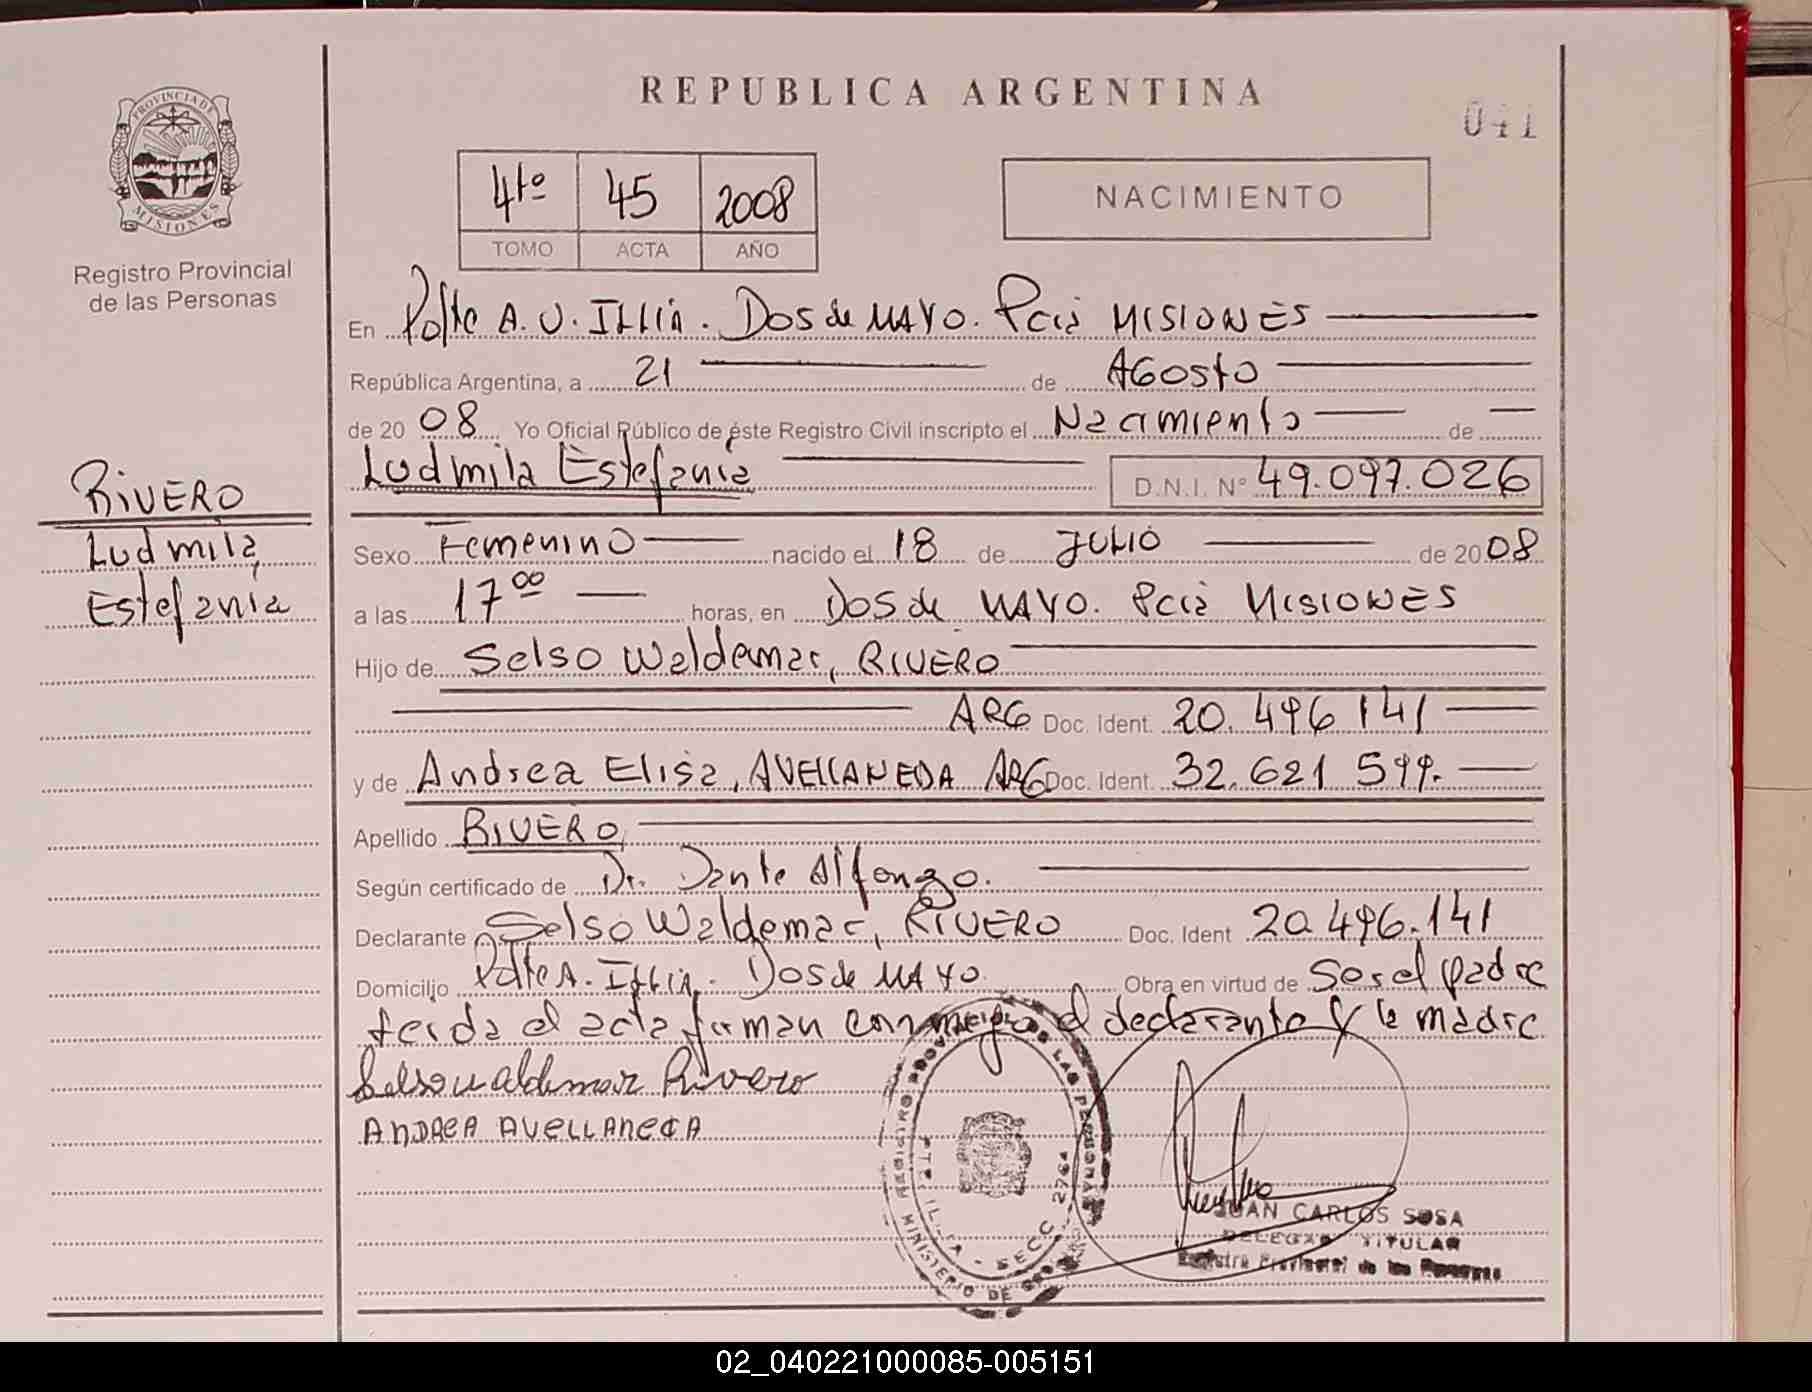 REPUBLICA ARGENTINA
041
PROVINCIA DE MISIONES
Registro Provincial
de las Personas
4to 45 2008
TOMO ACTA AÑO
NACIMIENTO
En Pdte A. U. ILLIA. DOS de MAYO. Pcia MISIONES
República Argentina, a 21 de AGOSTO
de 2008 Yo Oficial Público de éste Registro Civil inscripto el Nacimiento de
Ludmila Estefania D.N.I. N° 49.097.026
RIVERO
Ludmila,
Estefania
Sexo Femenino nacido el 18 de JULIO de 2008
a las 17 00 horas, en DOS de MAYO. Pcia MISIONES
Hijo de Selso Waldemar, RIVERO
ARG Doc. Ident. 20.496 141
y de Andrea Elisa, AVELLANEDA ARG Doc. Ident. 32.621 599.
Apellido RIVERO,
Según certificado de Dr. Dante Alfonzo.
Declarante Selso Waldemar, RIVERO Doc. Ident 20.496.141
Domicilio Pdte A. ILLIA. DOS de MAYO Obra en virtud de Ser el padre
leida el acta firman conmigo el declarante y la madre
Selso Waldemar Rivero
ANDREA AVELLANEDA
REGISTRO PROVINCIAL DE LAS PERSONAS
MINISTERIO DE
PTE ILLIA - SECC. 2764
JUAN CARLOS SOSA
DELEGADO TITULAR
Registro Provincial de las Personas
02_040221000085-005151